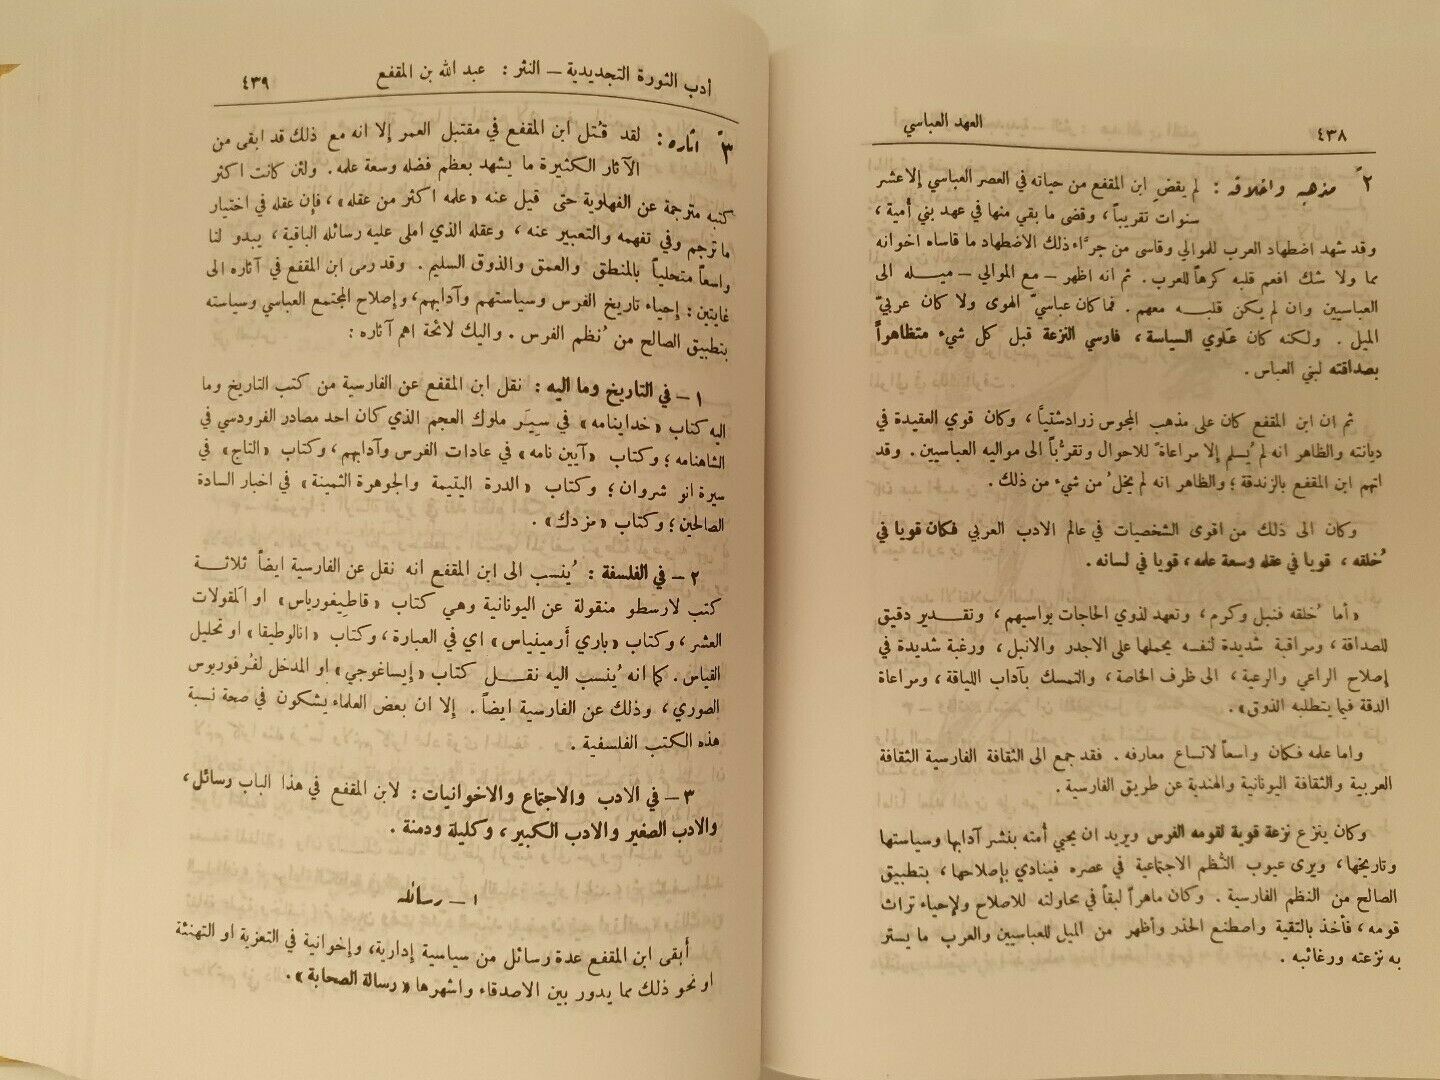 العهد العباسي ٤٣٨
٢ً مذهبه واخلاقه : لم يقضِ ابن المقفع من حياته في العصر العباسي إلا عشر
سنوات تقريباً ، وقضى ما بقي منها في عهد بني أمية ،
وقد شهد اضطهاد العرب للموالي وقاسى من جرَّاء ذلك الاضطهاد ما قاساه اخوانه
مما ولا شك افعم قلبه كرهاً للعرب . ثم انه اظهر – مع الموالي – ميله الى
العباسيين وان لم يكن قلبه معهم . فما كان عباسيّ الهوى ولا كان عربيّ
الميل . ولكنه كان علوي السياسة ، فارسي النزعة قبل كل شيء متظاهراً
بصداقته لبني العباس .
ثم ان ابن المقفع كان على مذهب المجوس زرادشتيًّا ، وكان قوي العقيدة في
ديانته والظاهر انه لم يُسلم إلا مراعاةً للاحوال وتقرُّباً الى مواليه العباسيين . وقد
اتهم ابن المقفع بالزندقة ؛ والظاهر انه لم يخلُ من شيء من ذلك .
وكان الى ذلك من اقوى الشخصيات في عالم الادب العربي فكان قويا في
خُلقه ، قويا في عقله وسعة علمه ، قويا في لسانه .
« أما خُلقه فنبل وكرم ، وتعهد لذوي الحاجات يواسيهم ، وتقدير دقيق
للصداقة ، ومراقبة شديدة لنفسه يحملها على الاجدر والانبل ، ورغبة شديدة في
إصلاح الراعي والرعية ، الى ظرف الخاصة ، والتمسك بآداب اللياقة ، ومراعاة
الدقة فيما يتطلبه الذوق » .
واما علمه فكان واسعاً لاتساع معارفه . فقد جمع الى الثقافة الفارسية الثقافة
العربية والثقافة اليونانية والهندية عن طريق الفارسية .
وكان ينزع نزعة قوية لقومه الفرس ويريد ان يحيي أمته بنشر آدابها وسياستها
وتاريخها ، ويرى عيوب النُظم الاجتماعية في عصره فينادي بإصلاحها ، بتطبيق
الصالح من النظم الفارسية . وكان ماهراً لبقاً في محاولته للاصلاح ولإحياء تراث
قومه ، فأخذ بالتقية واصطنع الحذر وأظهر من الميل للعباسيين والعرب ما يستر
به نزعته ورغائبه .
أدب الثورة التجديدية – النثر : عبد الله بن المقفع ٤٣٩
٣ً اثاره : لقد قُتل ابن المقفع في مقتبل العمر إلا انه مع ذلك قد ابقى من
الآثار الكثيرة ما يشهد بعظم فضله وسعة علمه . ولئن كانت اكثر
كتبه مترجمة عن الفهلوية حتى قيل عنه « علمه اكثر من عقله » ، فإن عقله في اختيار
ما ترجم وفي تفهمه والتعبير عنه ، وعقله الذي املى عليه رسائله الباقية ، يبدو لنا
واسعاً متحلياً بالمنطق والعمق والذوق السليم . وقد رمى ابن المقفع في آثاره الى
غايتين : إحياء تاريخ الفرس وسياستهم وآدابهم ، وإصلاح المجتمع العباسي وسياسته
بتطبيق الصالح من نُظم الفرس . واليك لائحة اهم آثاره :
١ – في التاريخ وما اليه : نقل ابن المقفع عن الفارسية من كتب التاريخ وما
اليه كتاب « خداينامه » في سِيَر ملوك العجم الذي كان احد مصادر الفرودسي في
الشاهنامه ؛ وكتاب « آيين نامه » في عادات الفرس وآدابهم ، وكتاب « التاج » في
سيرة انو شروان ؛ وكتاب « الدرة اليتيمة والجوهرة الثمينة » في اخبار السادة
الصالحين ؛ وكتاب « مزدك » .
٢ – في الفلسفة : يُنسب الى ابن المقفع انه نقل عن الفارسية ايضاً ثلاثة
كتب لارسطو منقولة عن اليونانية وهي كتاب « قاطيغورياس » او المقولات
العشر ، وكتاب « باري أرمينياس » اي في العبارة ، وكتاب « انالوطيقا » او تحليل
القياس . كما انه يُنسب اليه نقل كتاب « إيساغوجي » او المدخل لفُرفوريوس
الصوري ، وذلك عن الفارسية ايضاً . إلا ان بعض العلماء يشكون في صحة نسبة
هذه الكتب الفلسفية .
٣ – في الادب والاجتماع والاخوانيات : لابن المقفع في هذا الباب رسائل ،
والادب الصغير والادب الكبير ، وكليلة ودمنة .
١ – رسائله
أبقى ابن المقفع عدة رسائل من سياسية إدارية ، وإخوانية في التعزية او التهنئة
او نحو ذلك مما يدور بين الاصدقاء واشهرها « رسالة الصحابة » .